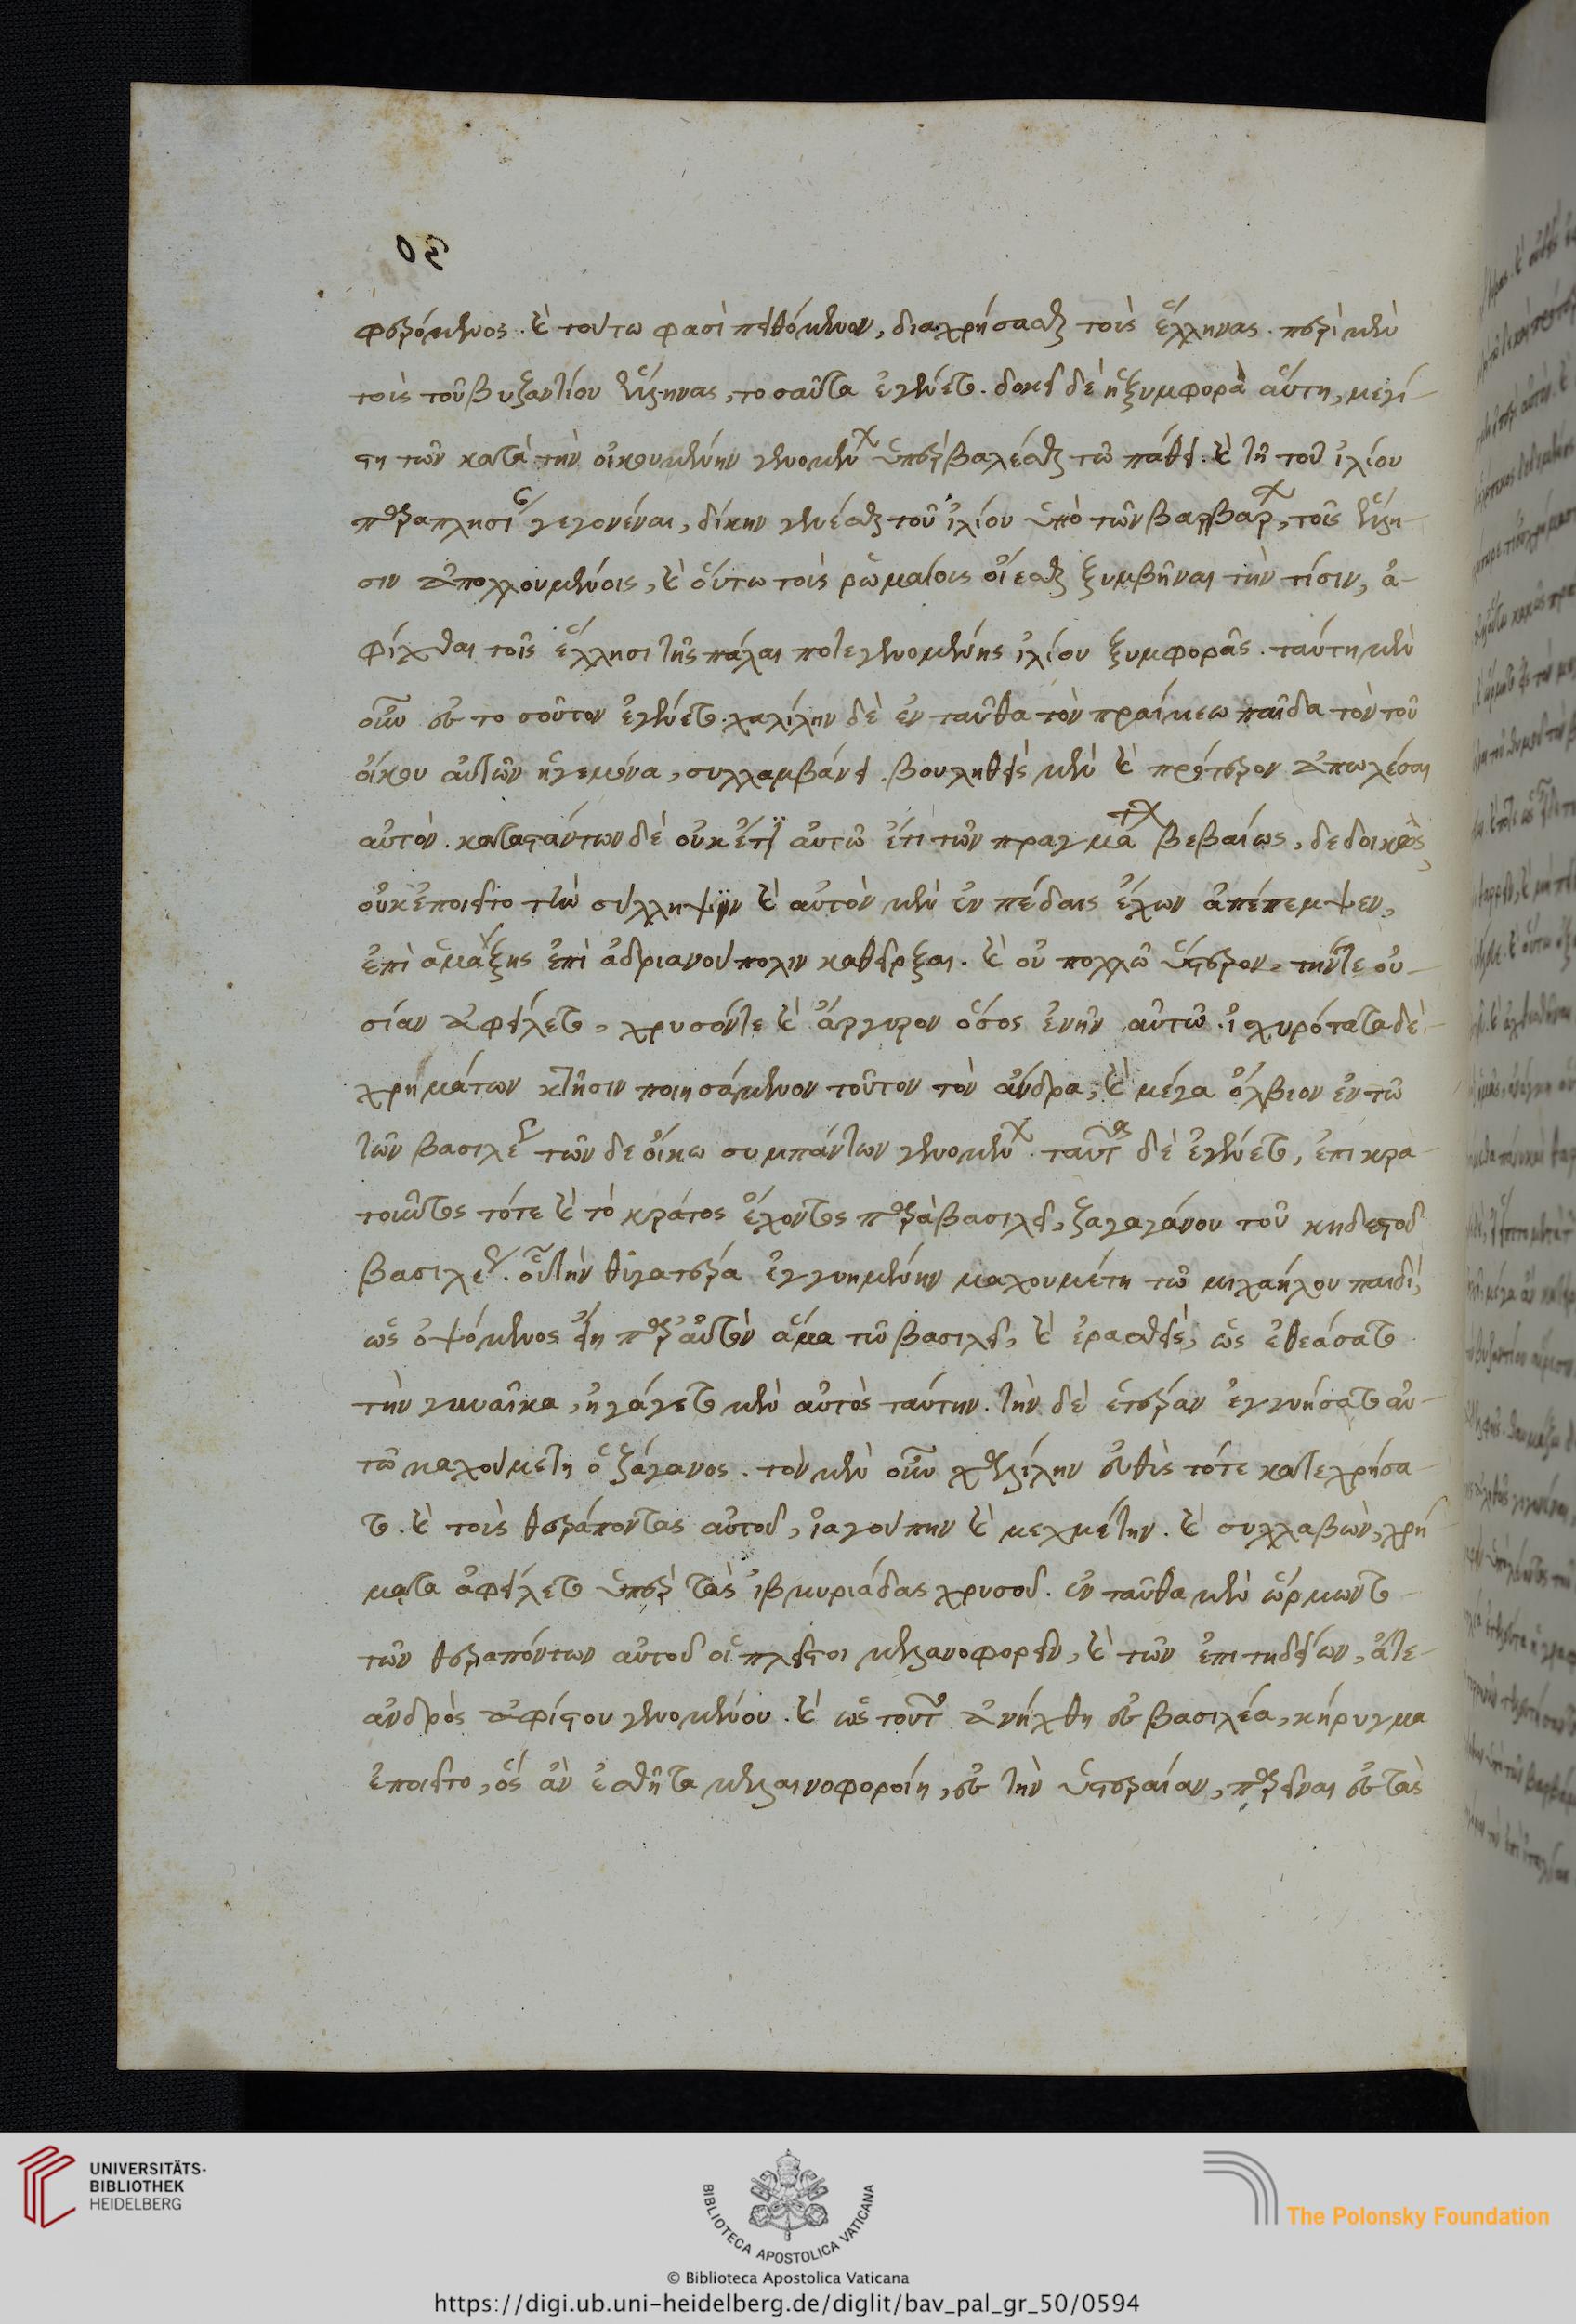 30
φερόμενος. καὶ τούτω φασὶ πειθόμενον, διαχρήσασθαι τοὺς ἕλληνας. περὶ μὲν
τοὺς τοῦ βυζαντίου ἕλληνας, τοσαῦτα ἐγένετο. δοκεῖ δὲ ἡ ξυμφορὰ αὕτη, μεγί-
στη τῶν κατὰ τὴν οἰκουμένην γενομένων ὑπερβαλέσθαι τῶ πάθει. καὶ τῆ τοῦ ἰλίου
παραπλησίαν γεγονέναι, δίκην γενέσθαι τοῦ ἰλίου ὑπὸ τῶν βαρβάρων, τοῖς ἕλλη-
σιν ἀπολλουμένοις, καὶ οὕτω τοὺς ῥωμαίους οἴεσθαι ξυμβῆναι τὴν τίσιν, ἀ-
φίχθαι τοῖς ἕλλησι τῆς πάλαι ποτε γενομένης ἰλίου ξυμφορᾶς. ταύτη μὲν
οὖν ἐς τοσοῦτον ἐγένετο. χαλίλην δὲ ἐνταῦθα τὸν πραίκεω παῖδα τὸν τοῦ
οἴκου αὐτῶν ἡγεμόνα, συλλαμβάνει. βουληθεὶς μὲν καὶ πρότερον ἀπωλέσαι
αὐτόν. καταστάντων δὲ οὐκέτι αὐτῶ ἔτι τῶν πραγμάτων βεβαίως, δεδοικὼς
οὐκ ἐποιεῖτο τὴν σύλληψιν καὶ αὐτὸν μὲν ἐν πέδαις ἔχων ἀπέπεμψεν,
ἐπὶ ἁμάξης ἐπὶ ἀδριανούπολιν καθεῖρξαι. καὶ οὐ πολλῶ ὕστερον, τήν τε οὐ-
σίαν ἀφείλετο, χρυσόν τε καὶ ἄργυρον ὅσος ἐνῆν αὐτῶ. ἰσχυρότατα δὲ
χρημάτων κτῆσιν ποιησάμενον τοῦτον τὸν ἄνδρα, καὶ μέγα ὄλβιον ἐν τῶ
τῶν βασιλέων τῶνδε οἴκω συμπάντων γενομένων. ταῦτα δὲ ἐγένετο, ἐπικρα-
τοῦντος τότε καὶ τὸ κράτος ἔχοντος παρὰ βασιλεῖ, ζαγαγάνου τοῦ κηδεστοῦ
βασιλέως. οὗ τὴν θυγατέρα ἐγγυημένην μαχουμέτη τῶ μιχαήλου παιδί,
ὡς ὀψόμενος εἴη παρ' αὐτὸν ἅμα τῶ βασιλεῖ, καὶ ἐρασθεὶς, ὡς ἐθεάσατο
τὴν γυναῖκα, ἠγάγετο μὲν αὐτὸς ταύτην. τὴν δὲ ἑτέραν ἐγγυήσατο αὐ-
τῶ μαχούμετη ὁ ζάγανος. τὸν μὲν οὖν χαλίλην εὐθὺς τότε κατεχρήσα-
το. καὶ τοὺς θεράποντας αὐτοῦ, ἰαγούπην καὶ μεχμέτην. καὶ συλλαβὼν, χρή
ματα ἀφείλετο ὑπὲρ τὰς ιβ μυριάδας χρυσοῦ. ἐνταῦθα μὲν ὥρμωντο
τῶν θεραπόντων αὐτοῦ οἱ πλεῖστοι μελανοφορεῖν, καὶ τῶν ἐπιτηδείων, ἅτε
ἀνδρὸς ἀρίστου γενομένου. καὶ ὡς τοῦτο ἀνήχθη ἐς βασιλέα, κήρυγμα
ἐποιεῖτο, ὃς ἂν ἐσθῆτα μελαινοφοροίη, ἐς τὴν ὑστεραίαν, παρεῖναι ἐς τὰς
UNIVERSITÄTS-
BIBLIOTHEK
HEIDELBERG
BIBLIOTECA APOSTOLICA VATICANA
The Polonsky Foundation
© Biblioteca Apostolica Vaticana
https://digi.ub.uni-heidelberg.de/diglit/bav_pal_gr_50/0594